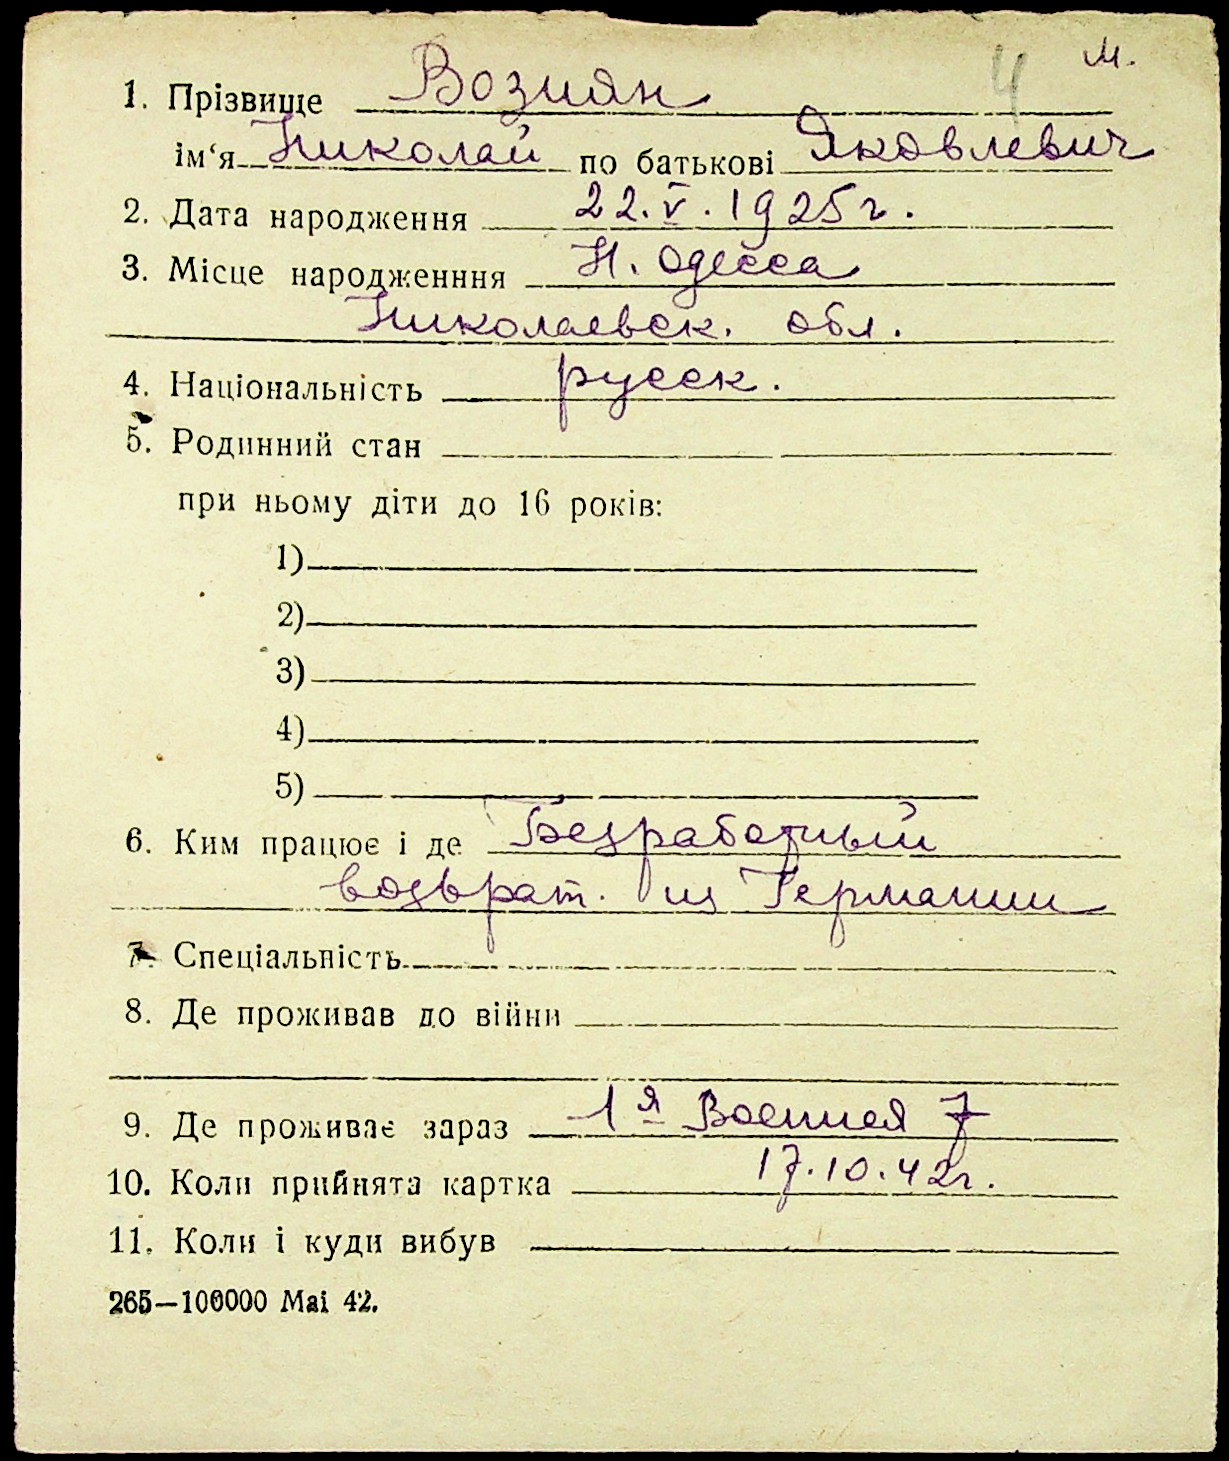 4 м.
1. Прізвище Возиян
ім‘я Николай по батькові Яковлевич
2. Дата народження 22.V.1925г.
3. Місце народженння Н. Одесса
Николаевск. обл.
4. Національність русск.
5. Родинний стан
при ньому діти до 16 років:
1)
2)
3)
4)
5)
6. Ким працює і де Безработный
возврат. из Германии
7. Спеціальність
8. Де проживав до війни
9. Де проживає зараз 1я Военная 7
10. Коли прийнята картка 17.10.42г.
11. Коли і куди вибув
265—100000 Mai 42.